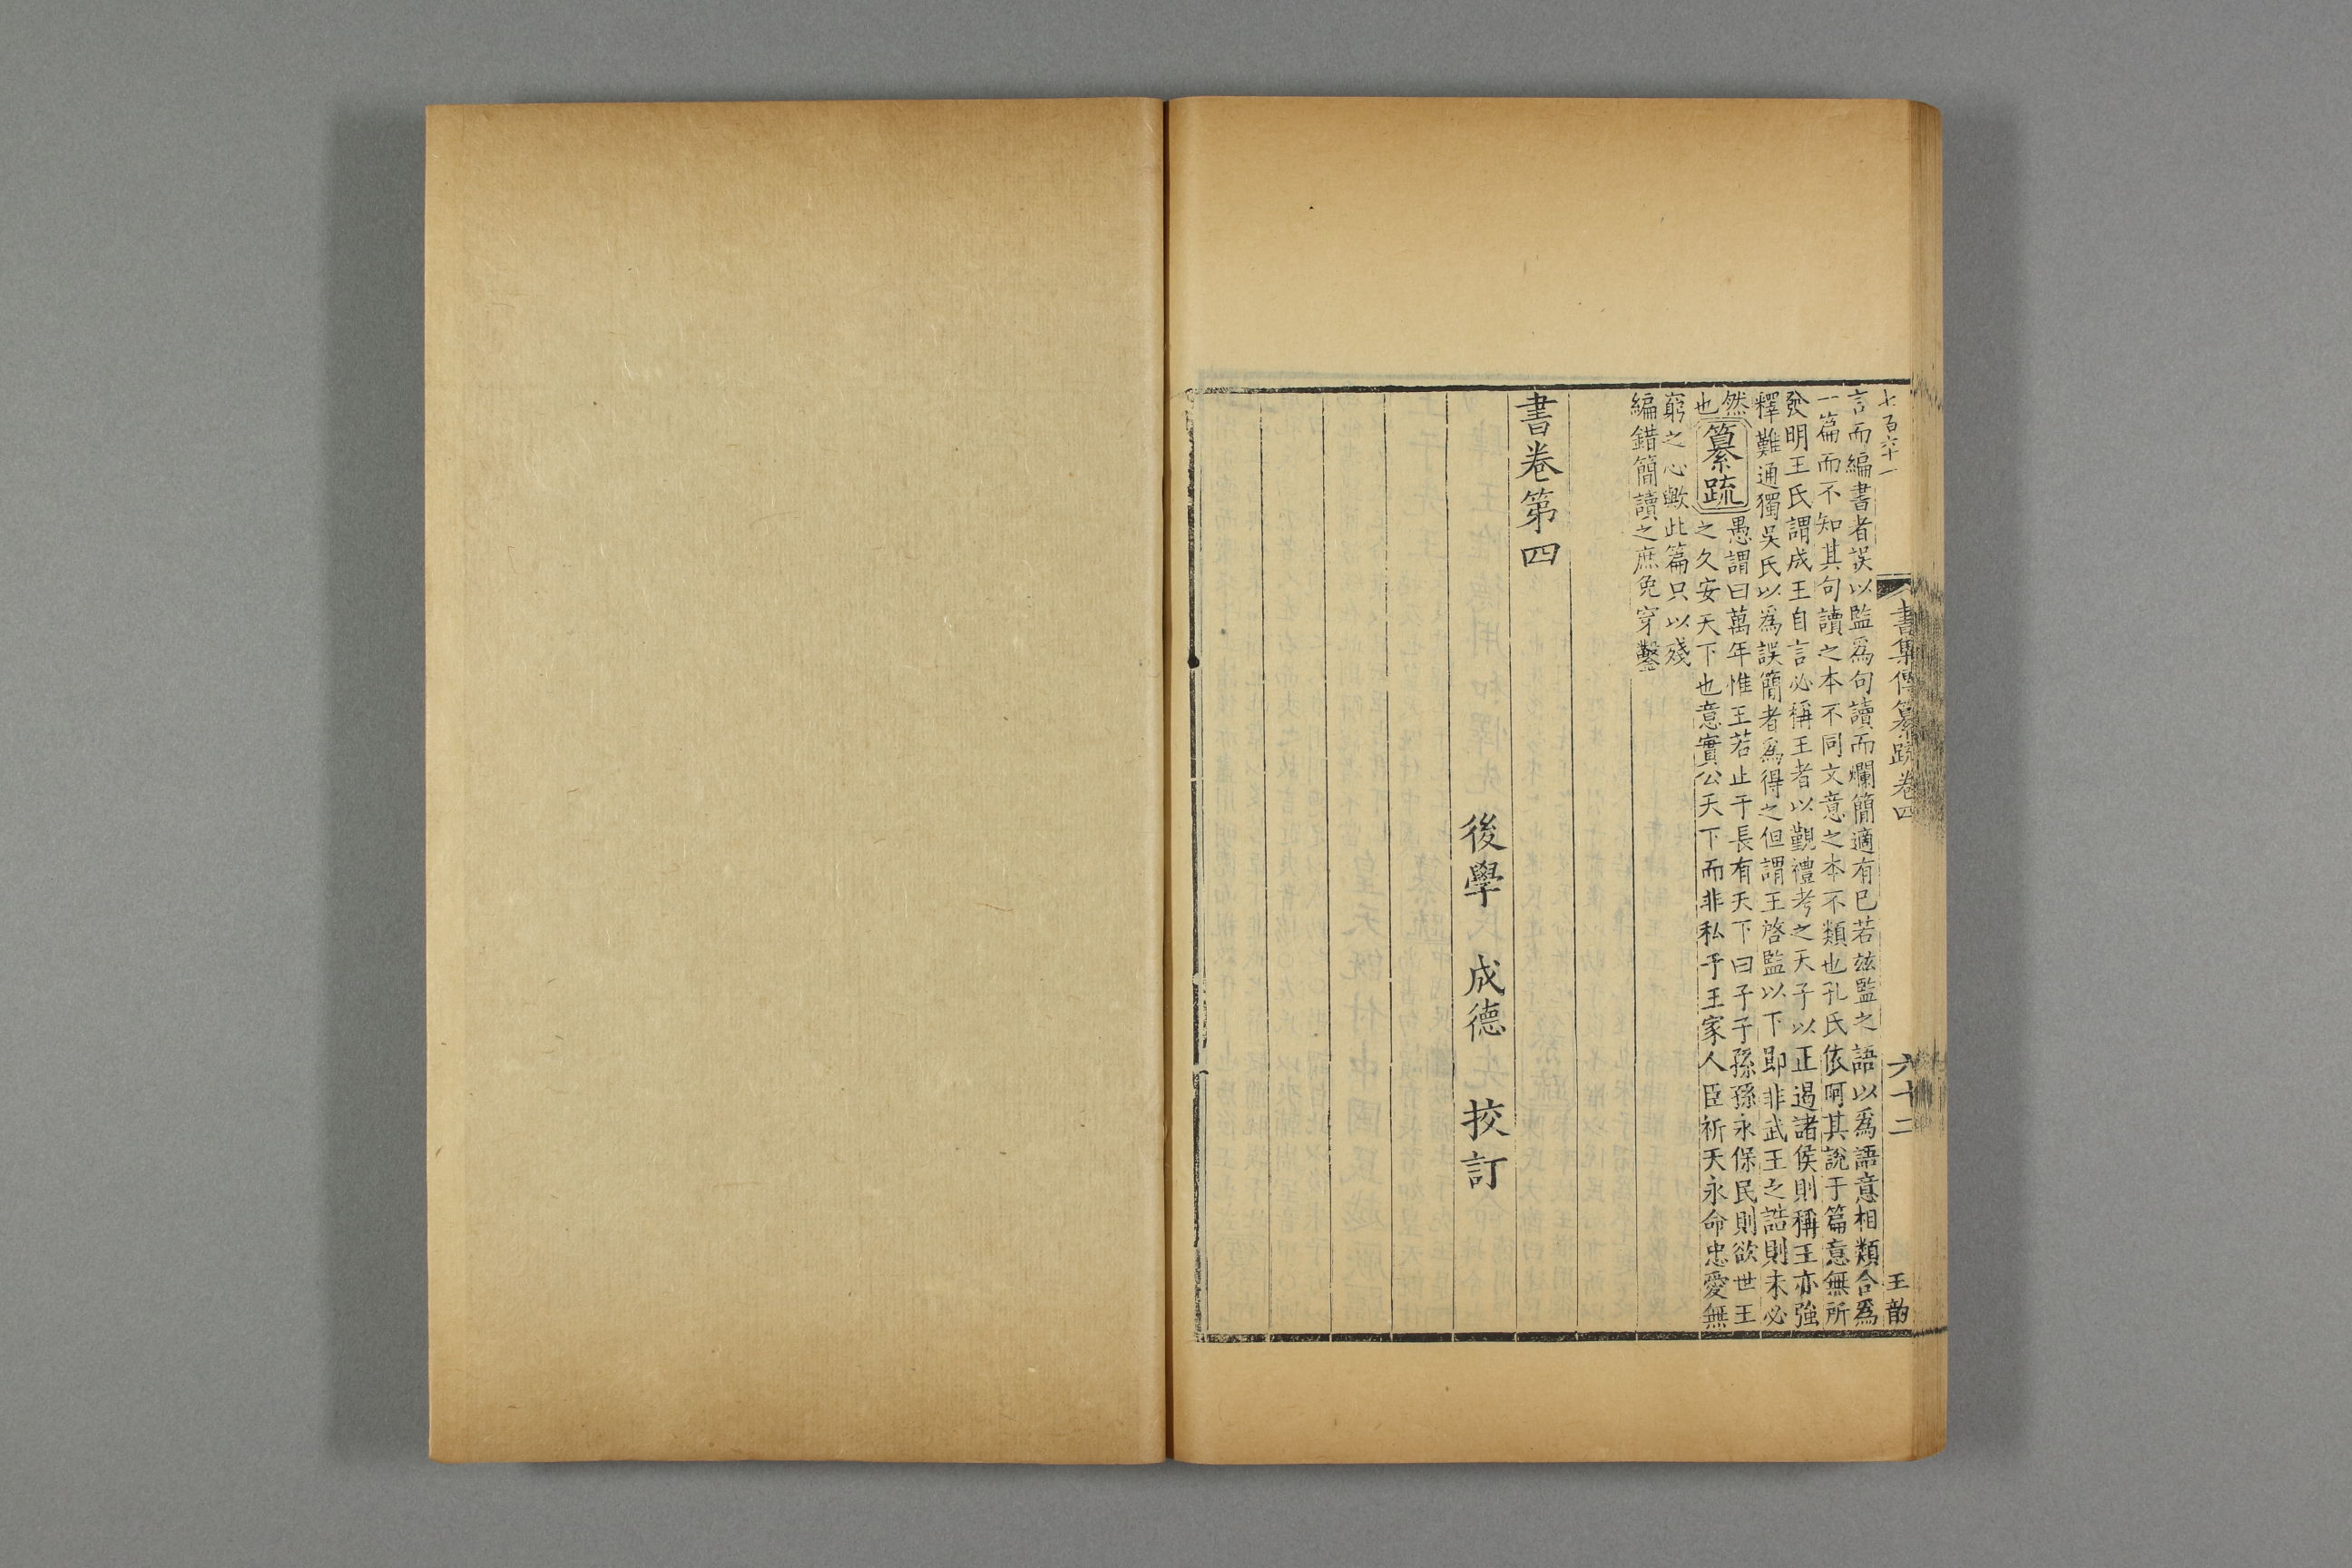 七百六十一
書集傳纂疏卷四
六十二
王韵
言而編書者誤以監爲句讀而爛簡適有已若兹監之語以爲語意相類合爲
一篇而不知其句讀之本不同文意之本不類也孔氏依阿其說于篇意無所
發明王氏謂成王自言必稱王者以覲禮考之天子以正遏諸侯則稱王亦強
釋難通獨吳氏以爲誤簡者爲得之但謂王啓監以下即非武王之誥則未必
然
也
纂疏
愚謂曰萬年惟王若止于長有天下曰子子孫孫永保民則欲世王
之久安天下也意實公天下而非私于王家人臣祈天永命忠愛無
窮之心歟此篇只以殘
編錯簡讀之庶免穿鑿
書卷第四
後學 成德 挍訂